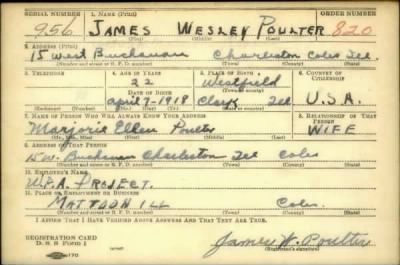 SERIAL NUMBER 1. NAME (Print) ORDER NUMBER
956 JAMES WESLEY POULTER 820
(First) (Middle) (Last)
2. ADDRESS (Print)
15 West Buchanan Charleston Coles Ill.
(Number and street or R. F. D. number) (Town) (County) (State)
3. TELEPHONE 4. AGE IN YEARS 5. PLACE OF BIRTH 6. COUNTRY OF CITIZENSHIP
22 Westfield
DATE OF BIRTH (Town or county)
April 7-1918 Clark Ill U.S.A.
(Exchange) (Number) (Mo.) (Day) (Yr.) (State or country)
7. NAME OF PERSON WHO WILL ALWAYS KNOW YOUR ADDRESS 8. RELATIONSHIP OF THAT PERSON
Marjorie Ellen Poulter WIFE
(Mr., Mrs., Miss) (First) (Middle) (Last)
9. ADDRESS OF THAT PERSON
15 W. Buchanan Charleston Ill Coles
(Number and street or R. F. D. number) (Town) (County) (State)
10. EMPLOYER'S NAME
W.P.A. PROJECT.
11. PLACE OF EMPLOYMENT OR BUSINESS
MATTOON ILL Coles.
(Number and street or R. F. D. number) (Town) (County) (State)
I AFFIRM THAT I HAVE VERIFIED ABOVE ANSWERS AND THAT THEY ARE TRUE.
REGISTRATION CARD
D. S. S. Form 1
James W. Poulter